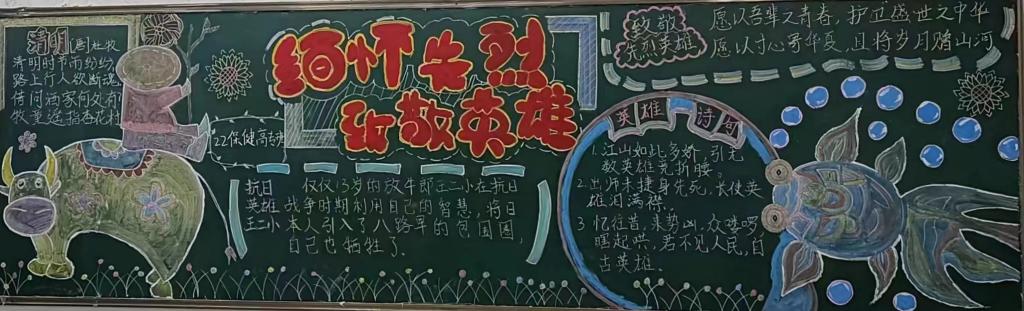 清明 [唐]杜牧
清明时节雨纷纷
路上行人欲断魂
借问酒家何处有
牧童遥指杏花村
缅怀先烈
致敬英雄
22保健高专
抗日英雄王二小
仅仅13岁的放牛郎王二小在抗日
战争时期利用自己的智慧,将日
本人引入了八路军的包围圈,
自己也牺牲了。
致敬
先烈英雄
愿以吾辈之青春,护卫盛世之中华
愿以寸心寄华夏,且将岁月赠山河
英雄诗句
1.江山如此多娇,引无
数英雄竞折腰。
2.出师未捷身先死,长使英
雄泪满襟。
3.忆往昔,来势凶,众喽啰
瞎起哄,君不见人民,自
古英雄。